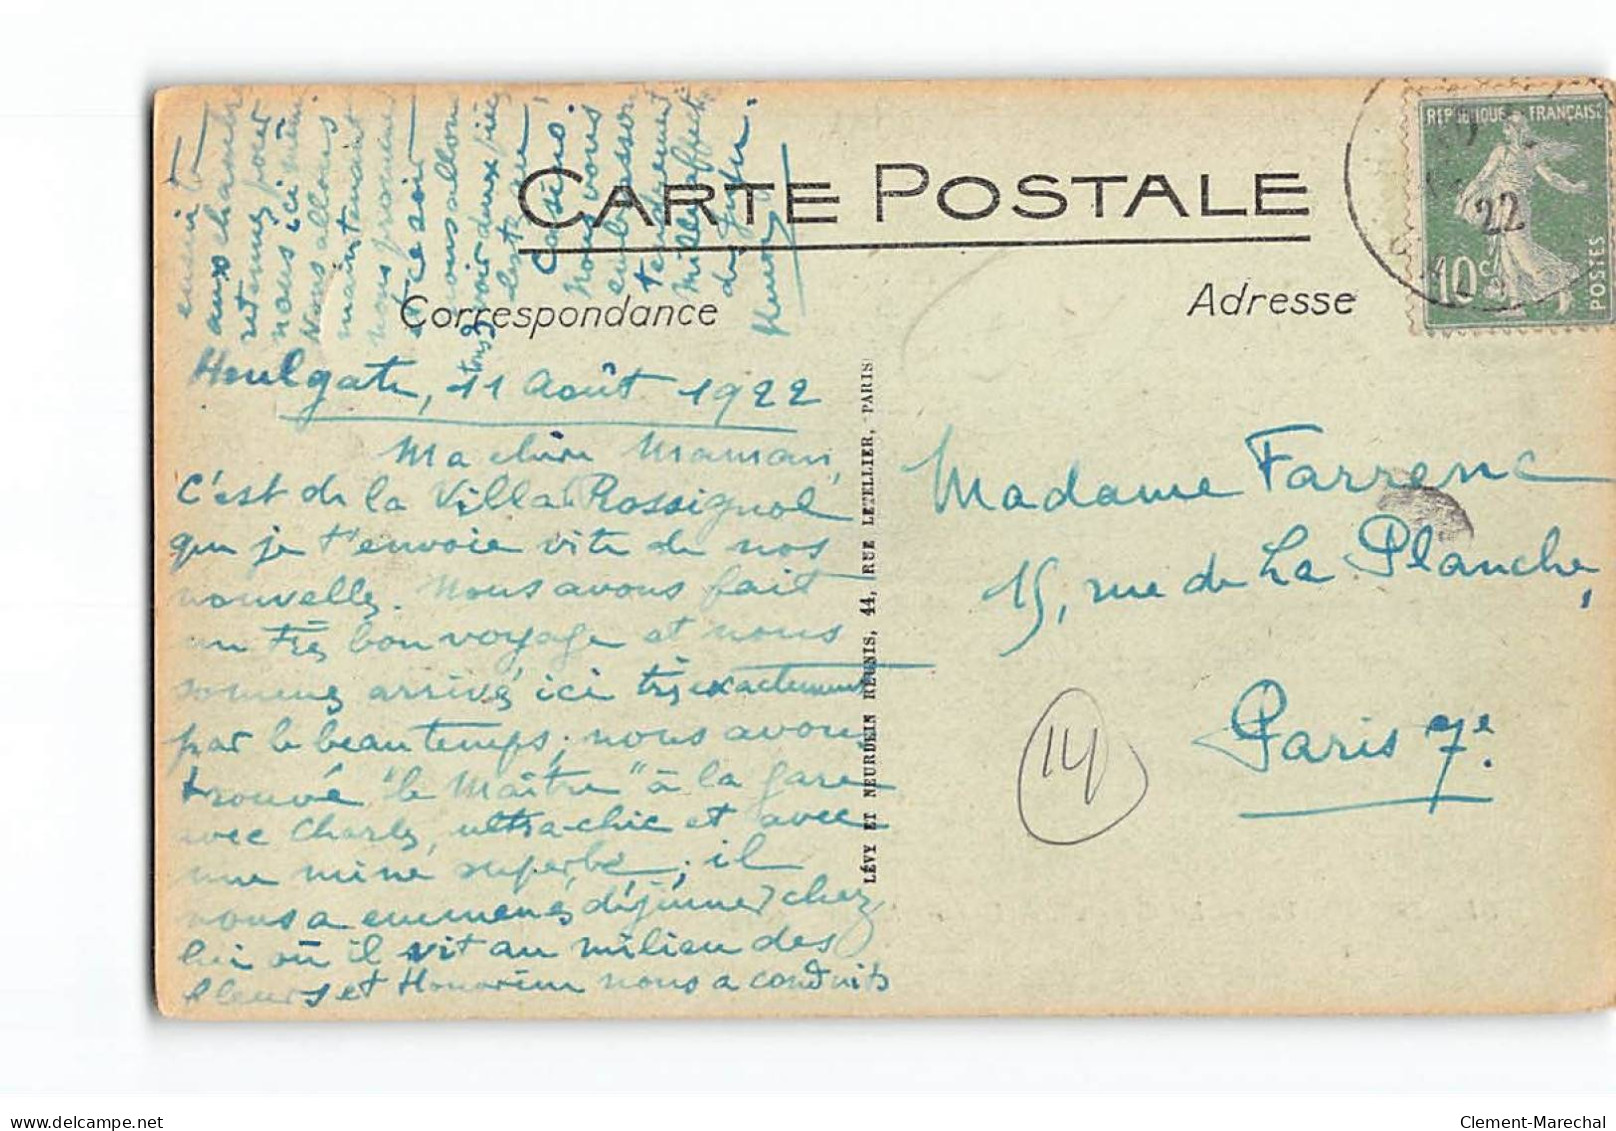 CARTE POSTALE
Correspondance
Adresse
REPUBLIQUE FRANÇAISE
10c
POSTES
22
LÉVY ET NEURDEIN RÉUNIS, 44, RUE LETELLIER, PARIS
Houlgate, 11 Août 1922
Ma chère Maman,
C'est de la Villa Rossignol
que je t'envoie vite de nos
nouvelles. Nous avons fait
un très bon voyage et nous
sommes arrivés ici très exactement
par le beau temps; nous avons
trouvé "le Maître" à la gare
avec Charles, ultra-chic et avec
une mine superbe; il
nous a emmenés déjeuner chez
lui où il vit au milieu des
fleurs et Honorine nous a conduits
ensuite
aux chambres
retenues pour
nous ici même.
Nous allons
maintenant
nous promener
et ce soir
nous allons
tous 3 voir deux pièces
lestes au
Casino.
Nous vous
embrassons
tendrement
Mille affect.
de Juju.
Henry
Madame Farrenc
15, rue de La Planche,
Paris 7e.
14
Clement-Marechal